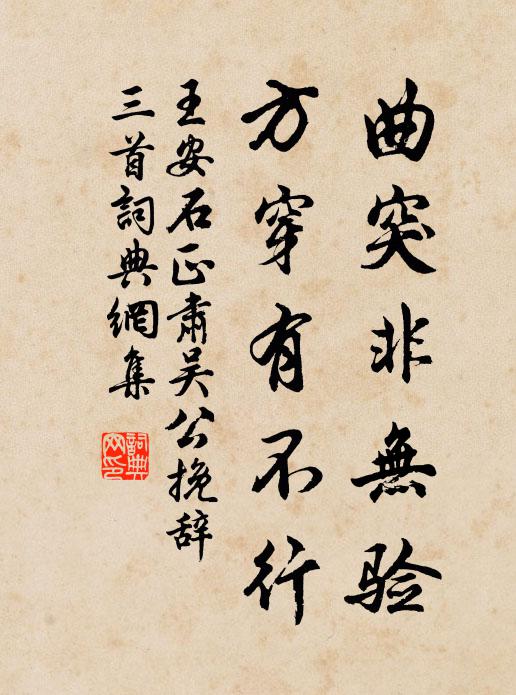 曲突非無验
方穿有不行
王安石正肅吴公挽辞
三首詞典網集
詞典網印